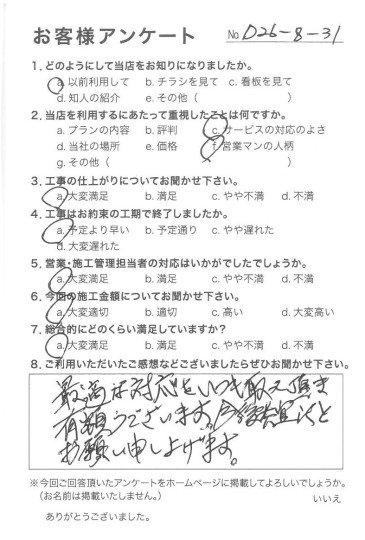 お客様アンケート No. D26-8-31
1. どのようにして当店をお知りになりましたか。
a. 以前利用して b. チラシを見て c. 看板を見て
d. 知人の紹介 e. その他（ ）
2. 当店を利用するにあたって重視したことは何ですか。
a. プランの内容 b. 評判 c. サービスの対応のよさ
d. 当社の場所 e. 価格 f. 営業マンの人柄
g. その他（ ）
3. 工事の仕上がりについてお聞かせ下さい。
a. 大変満足 b. 満足 c. やや不満 d. 不満
4. 工事はお約束の工期で終了しましたか。
a. 予定より早い b. 予定通り c. やや遅れた
d. 大変遅れた
5. 営業・施工管理担当者の対応はいかがでしたでしょうか。
a. 大変満足 b. 満足 c. やや不満 d. 不満
6. 今回の施工金額についてお聞かせ下さい。
a. 大変適切 b. 適切 c. 高い d. 大変高い
7. 総合的にどのくらい満足していますか？
a. 大変満足 b. 満足 c. やや不満 d. 不満
8. ご利用いただいたご感想などございましたらぜひお聞かせ下さい。
最適な対応をいつも取って頂き
有難うございます。今後共宜しく
お願い申し上げます。
※今回ご回答頂いたアンケートをホームページに掲載してよろしいでしょうか。
（お名前は掲載いたしません。） いいえ
ありがとうございました。